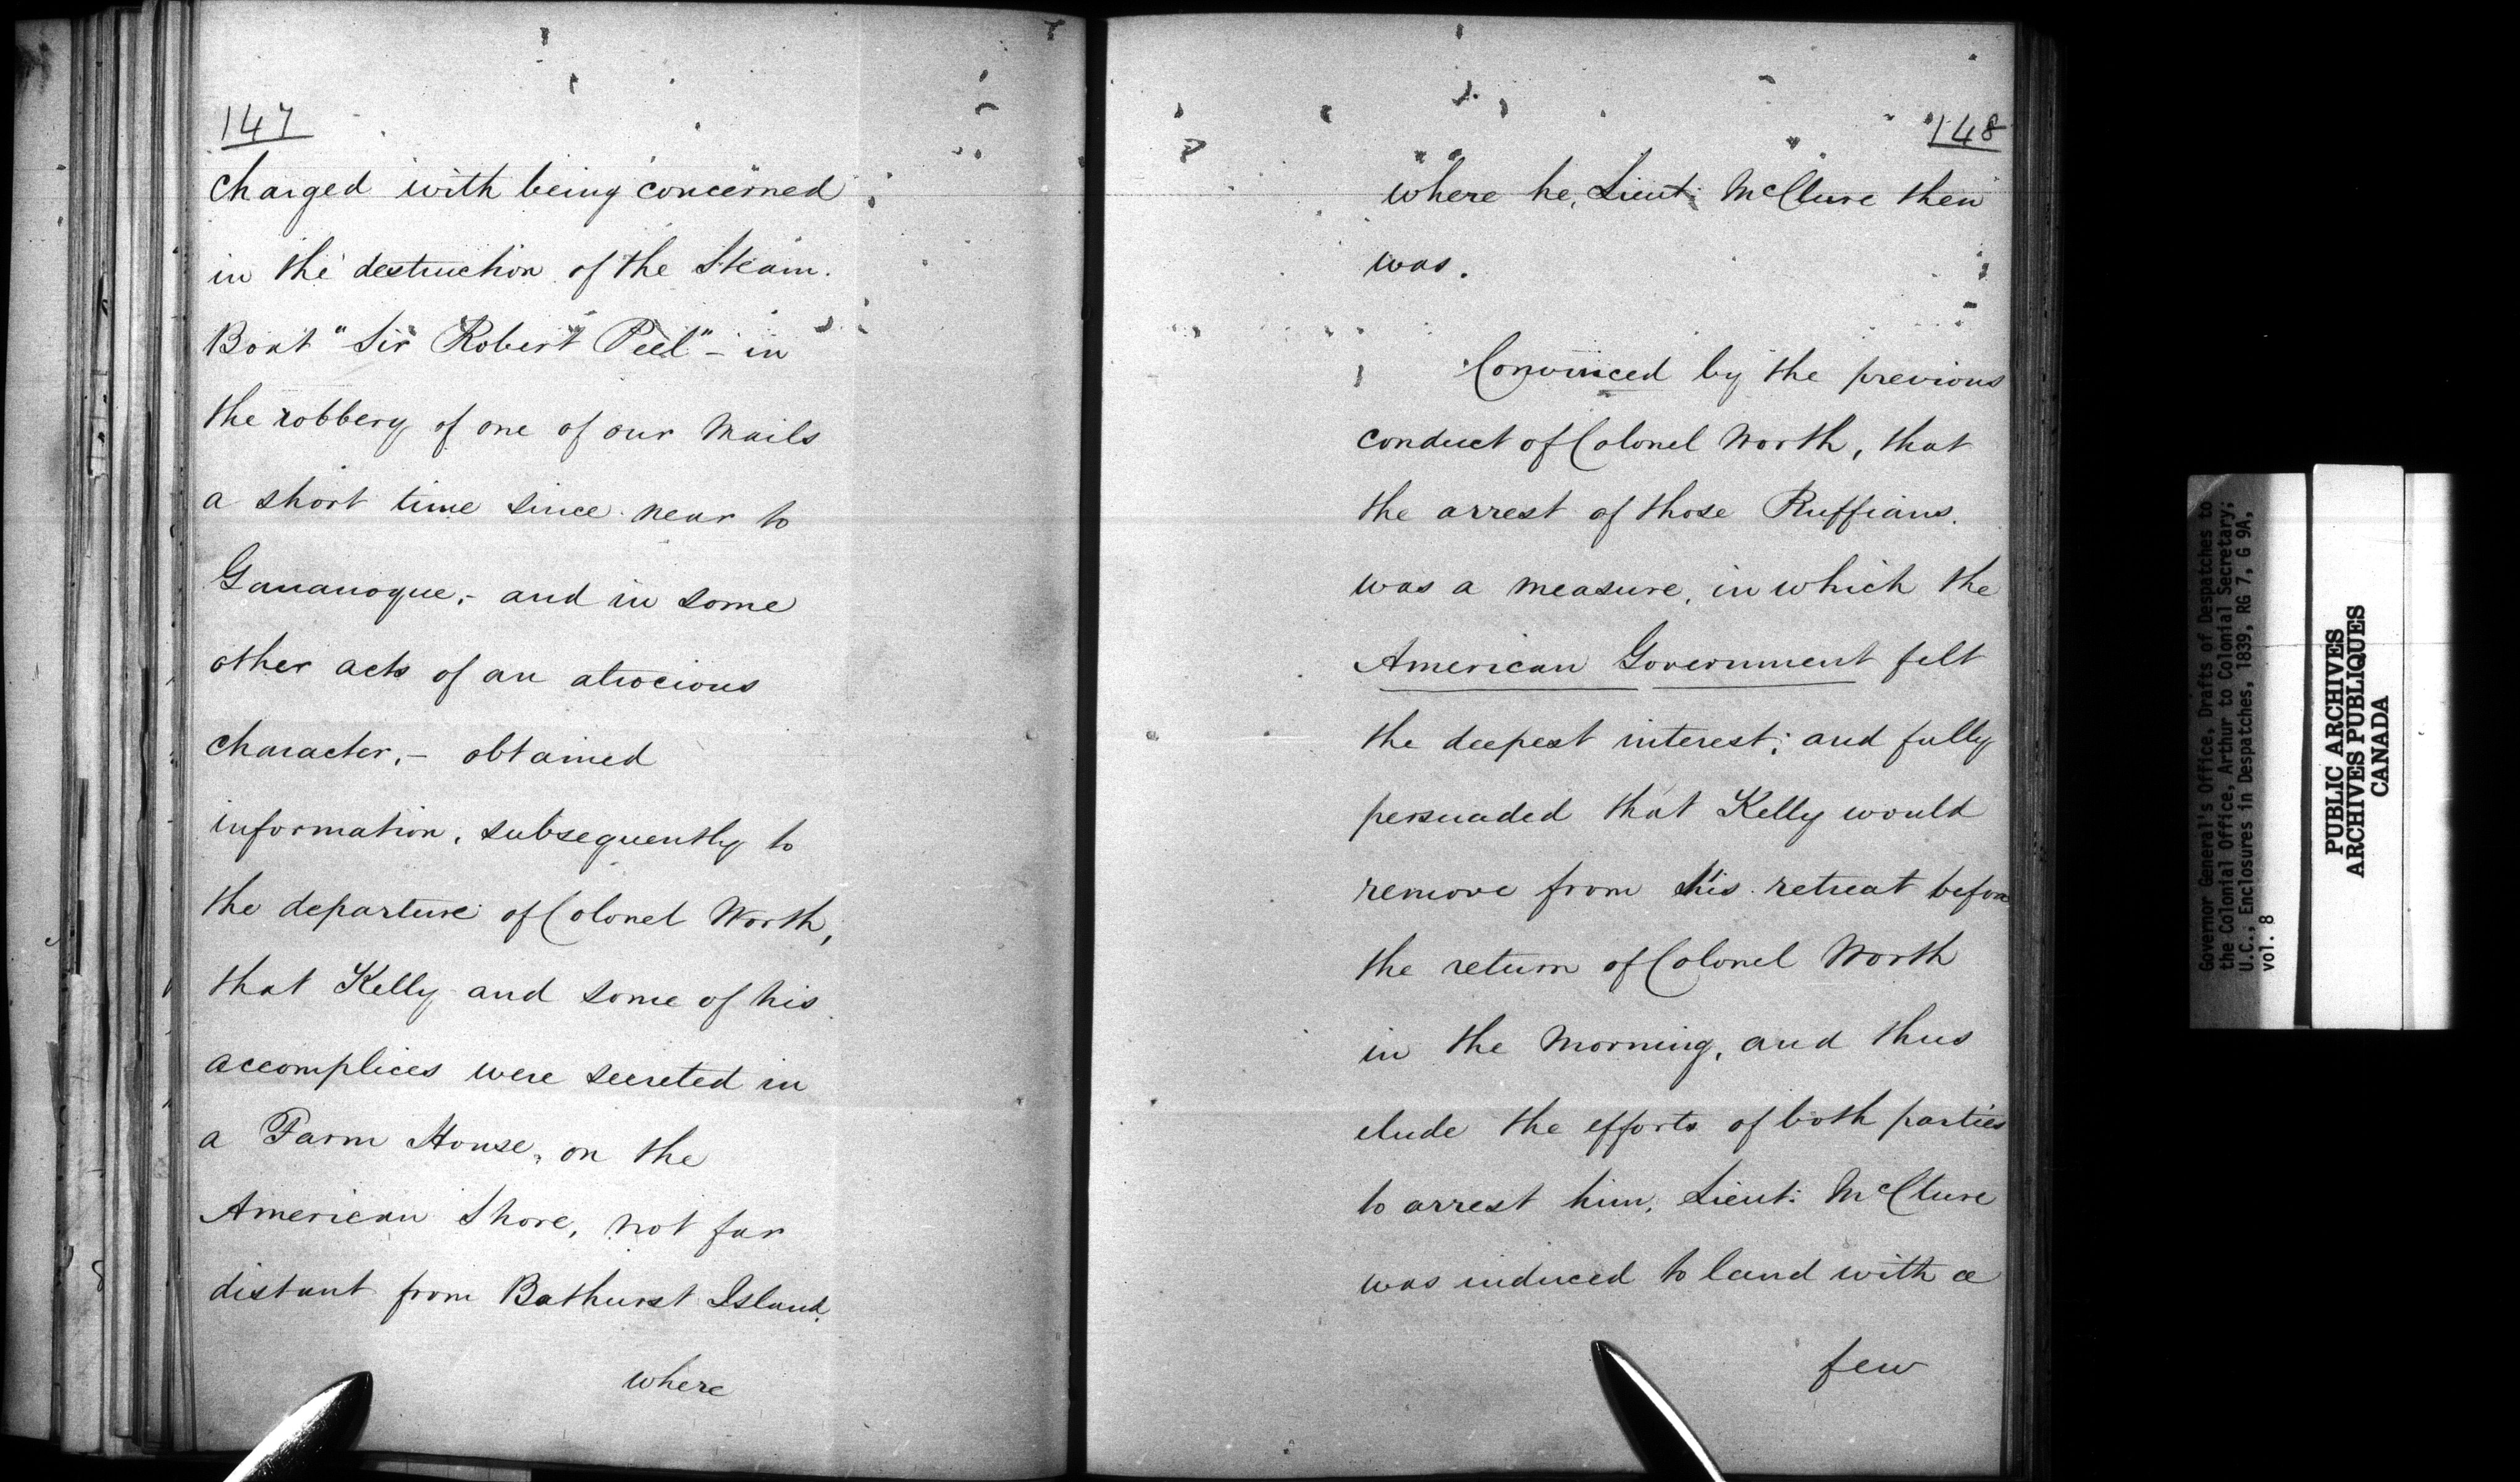 147
charged with being concerned
in the destruction of the Steam.
Boat "Sir Robert Peel" - in
the robbery of one of our Mails
a short time since near to
Gananoque, - and in some
other acts of an atrocious
character, - obtained
information, subsequently to
the departure of Colonel Worth,
that Kelly and some of his
accomplices were secreted in
a Farm House, on the
American Shore, not far
distant from Bathurst Island,
where
148
where he, Lieut: McClure then
was.
Convinced by the previous
conduct of Colonel Worth, that
the arrest of those Ruffians.
was a measure, in which the
American Government felt
the deepest interest; and fully
persuaded that Kelly would
remove from his retreat before
the return of Colonel Worth
in the Morning, and thus
elude the efforts of both parties
to arrest him, Lieut: McClure
was induced to land with a
few
Governor General's Office, Drafts of Despatches to
the Colonial Office, Arthur to Colonial Secretary;
U.C.; Enclosures in Despatches, 1839, RG 7, G 9A,
vol. 8
PUBLIC ARCHIVES
ARCHIVES PUBLIQUES
CANADA